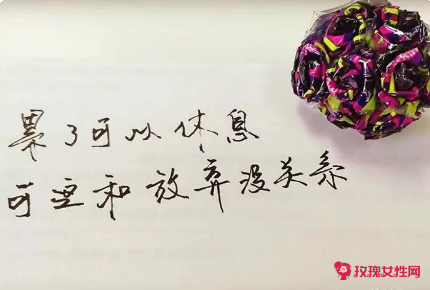 累了可以休息
可亚和放弃没关系
玫瑰女性网